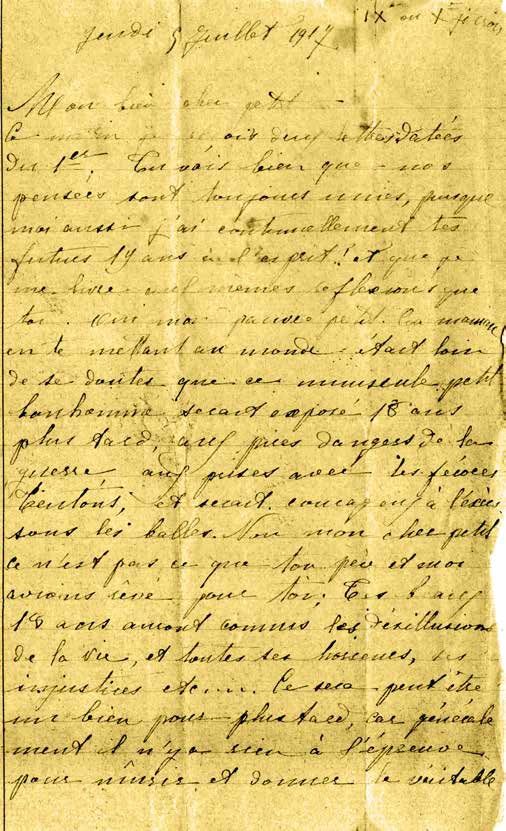 IX ou X je crois
Jeudi 5 Juillet 1917
Mon bien cher petit -
Ce matin je reçois deux lettres datées
du 1er. Tu vois bien que nos
pensées sont toujours unies, puisque
moi aussi j'ai continuellement tes
futurs 19 ans à l'esprit! et que je
me livre aux mêmes réflexions que
toi. Oui mon pauvre petit. Ta maman
en te mettant au monde était loin
de se douter que ce minuscule petit
bonhomme serait exposé 18 ans
plus tard, aux pires dangers de la
guerre aux prises avec les féroces
Teutons, et serait courageux à l'excès
sous les balles. Non mon cher petit
ce n'est pas ce que ton père et moi
avions rêvé pour toi; Tes beaux
18 ans auront connus les désillusions
de la vie, et toutes ses horreurs, ses
injustices etc.... Ce sera peut être
un bien pour plus tard, car générale
ment il n'y a rien à l'épreuve
pour mûrir et donner le véritable